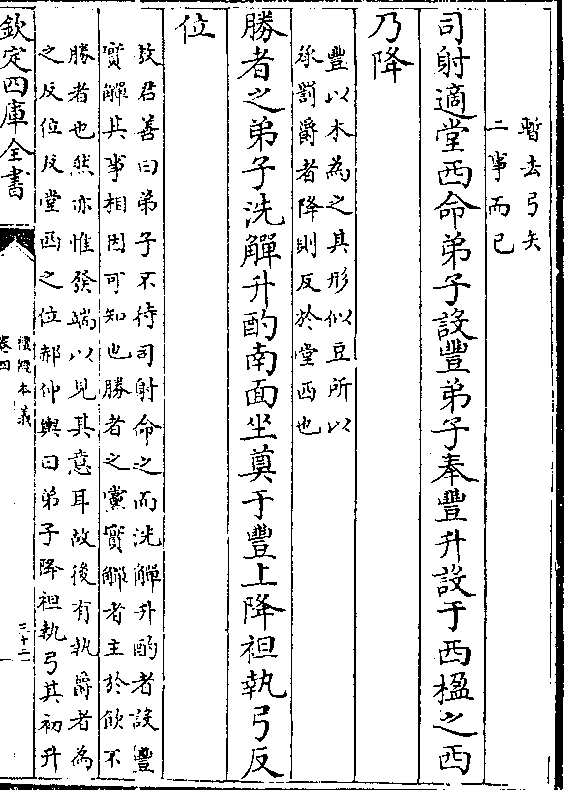 暫去弓矢
二事而已
司射適堂西命弟子設豐弟子奉豐升設于西楹之西
乃降
豐以木為之其形似豆所以
承罰爵者降則反於堂西也
勝者之弟子洗觶升酌南面坐奠于豐上降袒執弓反
位
敖君善曰弟子不待司射命之而洗觶升酌者設豐
實觶其事相因可知也勝者之黨實觶者主於飲不
勝者也然亦惟發端以見其意耳故後有執爵者為
之反位反堂西之位郝仲輿曰弟子降袒執弓其初升
欽定四庫全書
禮經本義
卷四
三十二